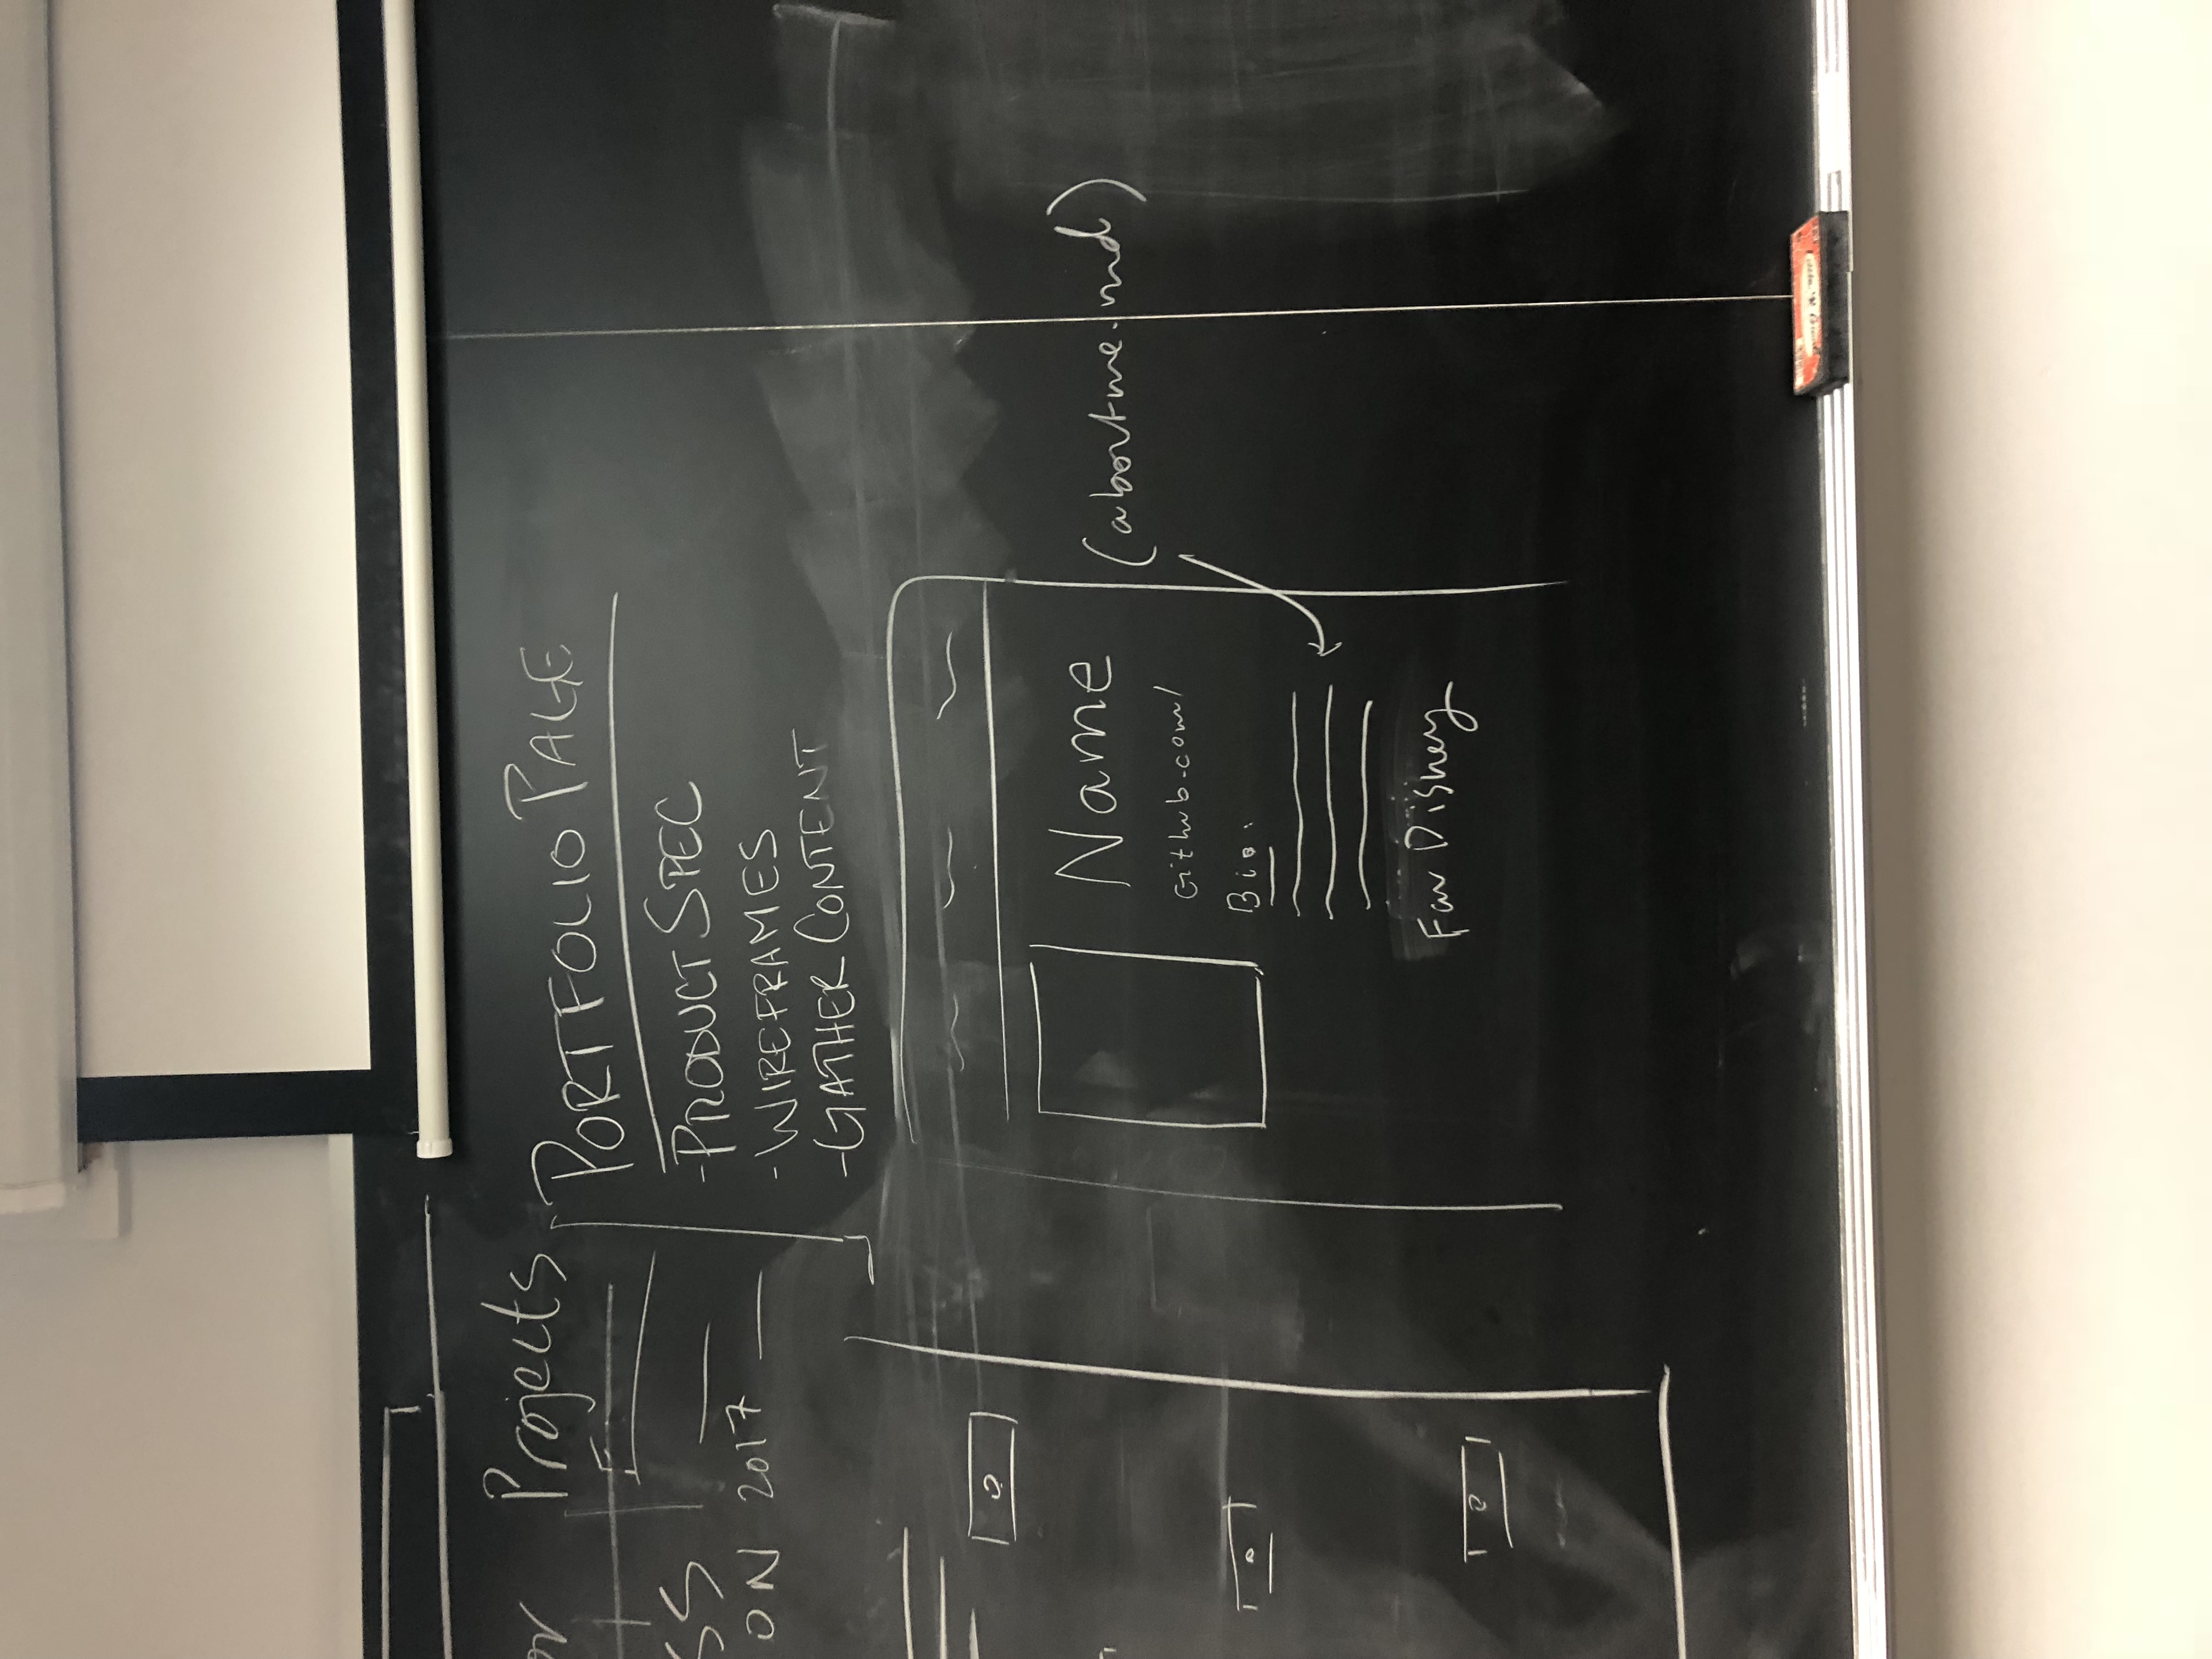 Projects
SS
ON 2017
PORTFOLIO PAGE
-PRODUCT SPEC
-WIREFRAMES
-GATHER CONTENT
Name
Github.com/
Bio:
(aboutme.md)
Fav Disney